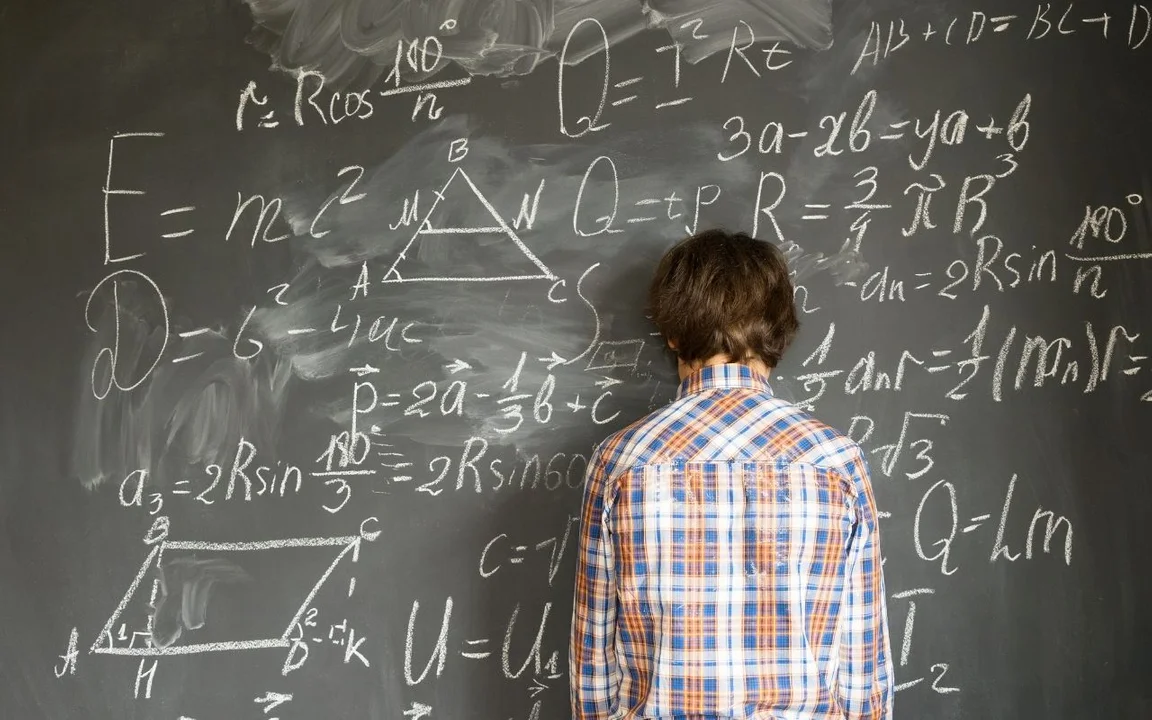 AB + CD = BC + D
r = Rcos 180° / n
Q = I² Rt
3a - xb = ya + b
E = mc²
B
M N
A C
Q = tp
R = 3/4 π R³
-an = 2Rsin 180° / n
D = b² - 4ac
1/2 anr = 1/2 (man)r =
p⃗ = 2a⃗ - 1/3 b⃗ + c⃗
√3
a₃ = 2Rsin 180° / 3 = 2Rsin60
Q = Lm
B C
c = √
A 1 H D 2 K
U = U₁
I
- 2